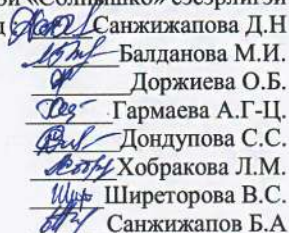 «Солнышко»
Санжижапова Д.Н
Балданова М.И.
Доржиева О.Б.
Гармаева А.Г-Ц.
Дондупова С.С.
Хобракова Л.М.
Ширеторова В.С.
Санжижапов Б.А